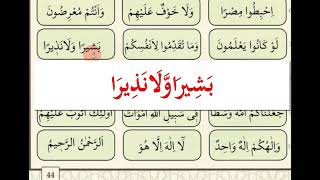 اِهْبِطُوا مِصْرًا وَلَا خَوْفٌ عَلَيْهِمْ وَاَنْتُمْ مُعْرِضُونَ
لَوْ كَانُوا يَعْلَمُونَ وَمَا تُقَدِّمُوا لِاَنْفُسِكُمْ بَشِيرًا وَلَا نَذِيرًا
بَشِيرًا وَّلَا نَذِيرًا
جَعَلْنَاكُمْ اُمَّةً وَسَطًا فِى سَبِيلِ اللّٰهِ اَمْوَاتٌ اُولٰئِكَ اَتُوبُ عَلَيْهِمْ
وَاِلٰهُكُمْ اِلٰهٌ وَاحِدٌ لَٓا اِلٰهَ اِلَّا هُوَ اَلرَّحْمٰنُ الرَّحِيمُ
44